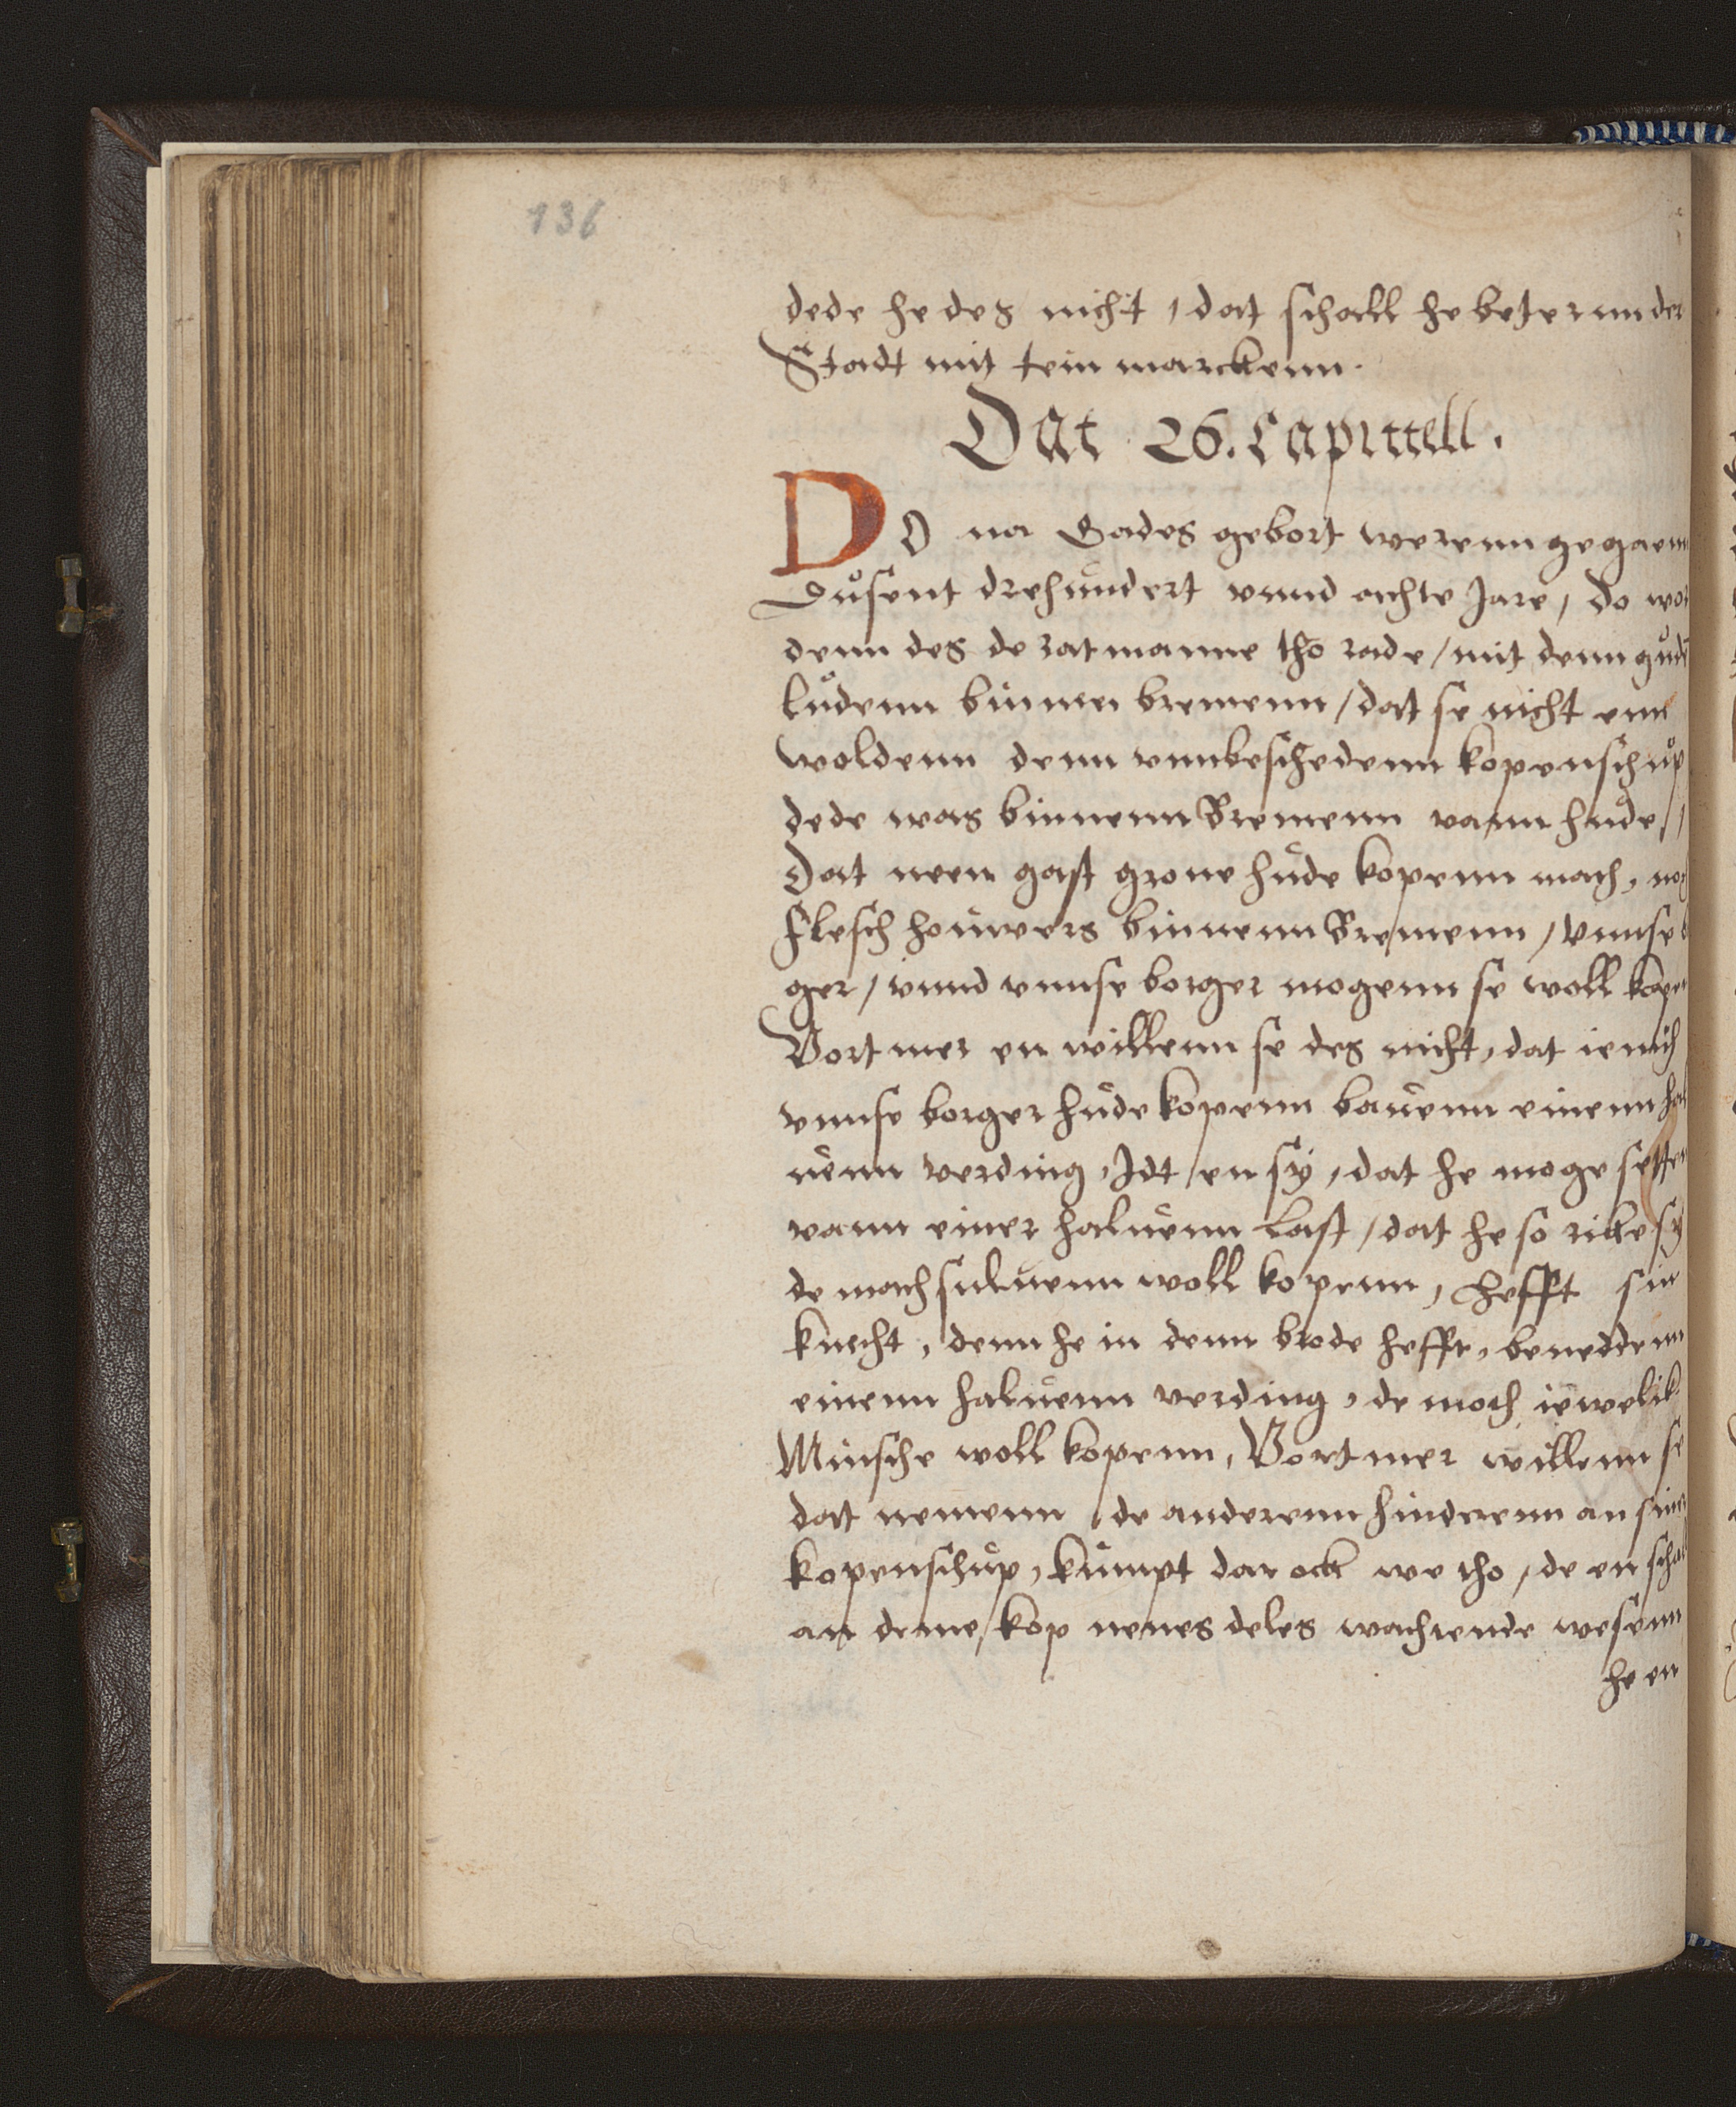 136
dede he des nicht, dat schall he beterenn der
Stadt mit tein marckenn.
Dat 26. Capittell.
DO na Gades gebort werenn gegaenn
Dusent drehundert vnnd achte Jare, do wor
denn des de ratmanne tho rade / mit denn guden
ludenn binnen bremenn / dat se nicht enn
woldenn denn vnnbeschedenn kopenschup
dede was binnenn Bremenn vann hude /
Dat neen gast grone hude kopenn mach, noch
Flesch houwers binnenn Bremenn / vnnse
ger / vnnd vnnse borger mogenn se woll kopen
Vortmer en willenn se des nicht, dat ienich
vnnse borger hude kopenn bauenn einenn hal
uenn verding, Idt en sy, dat he moge setten
vann einer haluenn last / dat he so rike sy
de mach suluenn woll kopenn, hefft sin
knecht, denn he in denn brode hefft, beneddenn
einenn haluenn verding, de moch iewelik
Minsche woll kopenn, Vortmer willenn se
dat nemenn de anderenn hinderenn an siner
kopenschup, kumpt dar ock we tho, de en schal
an deme kop nenes deles wachtende wesenn
he en